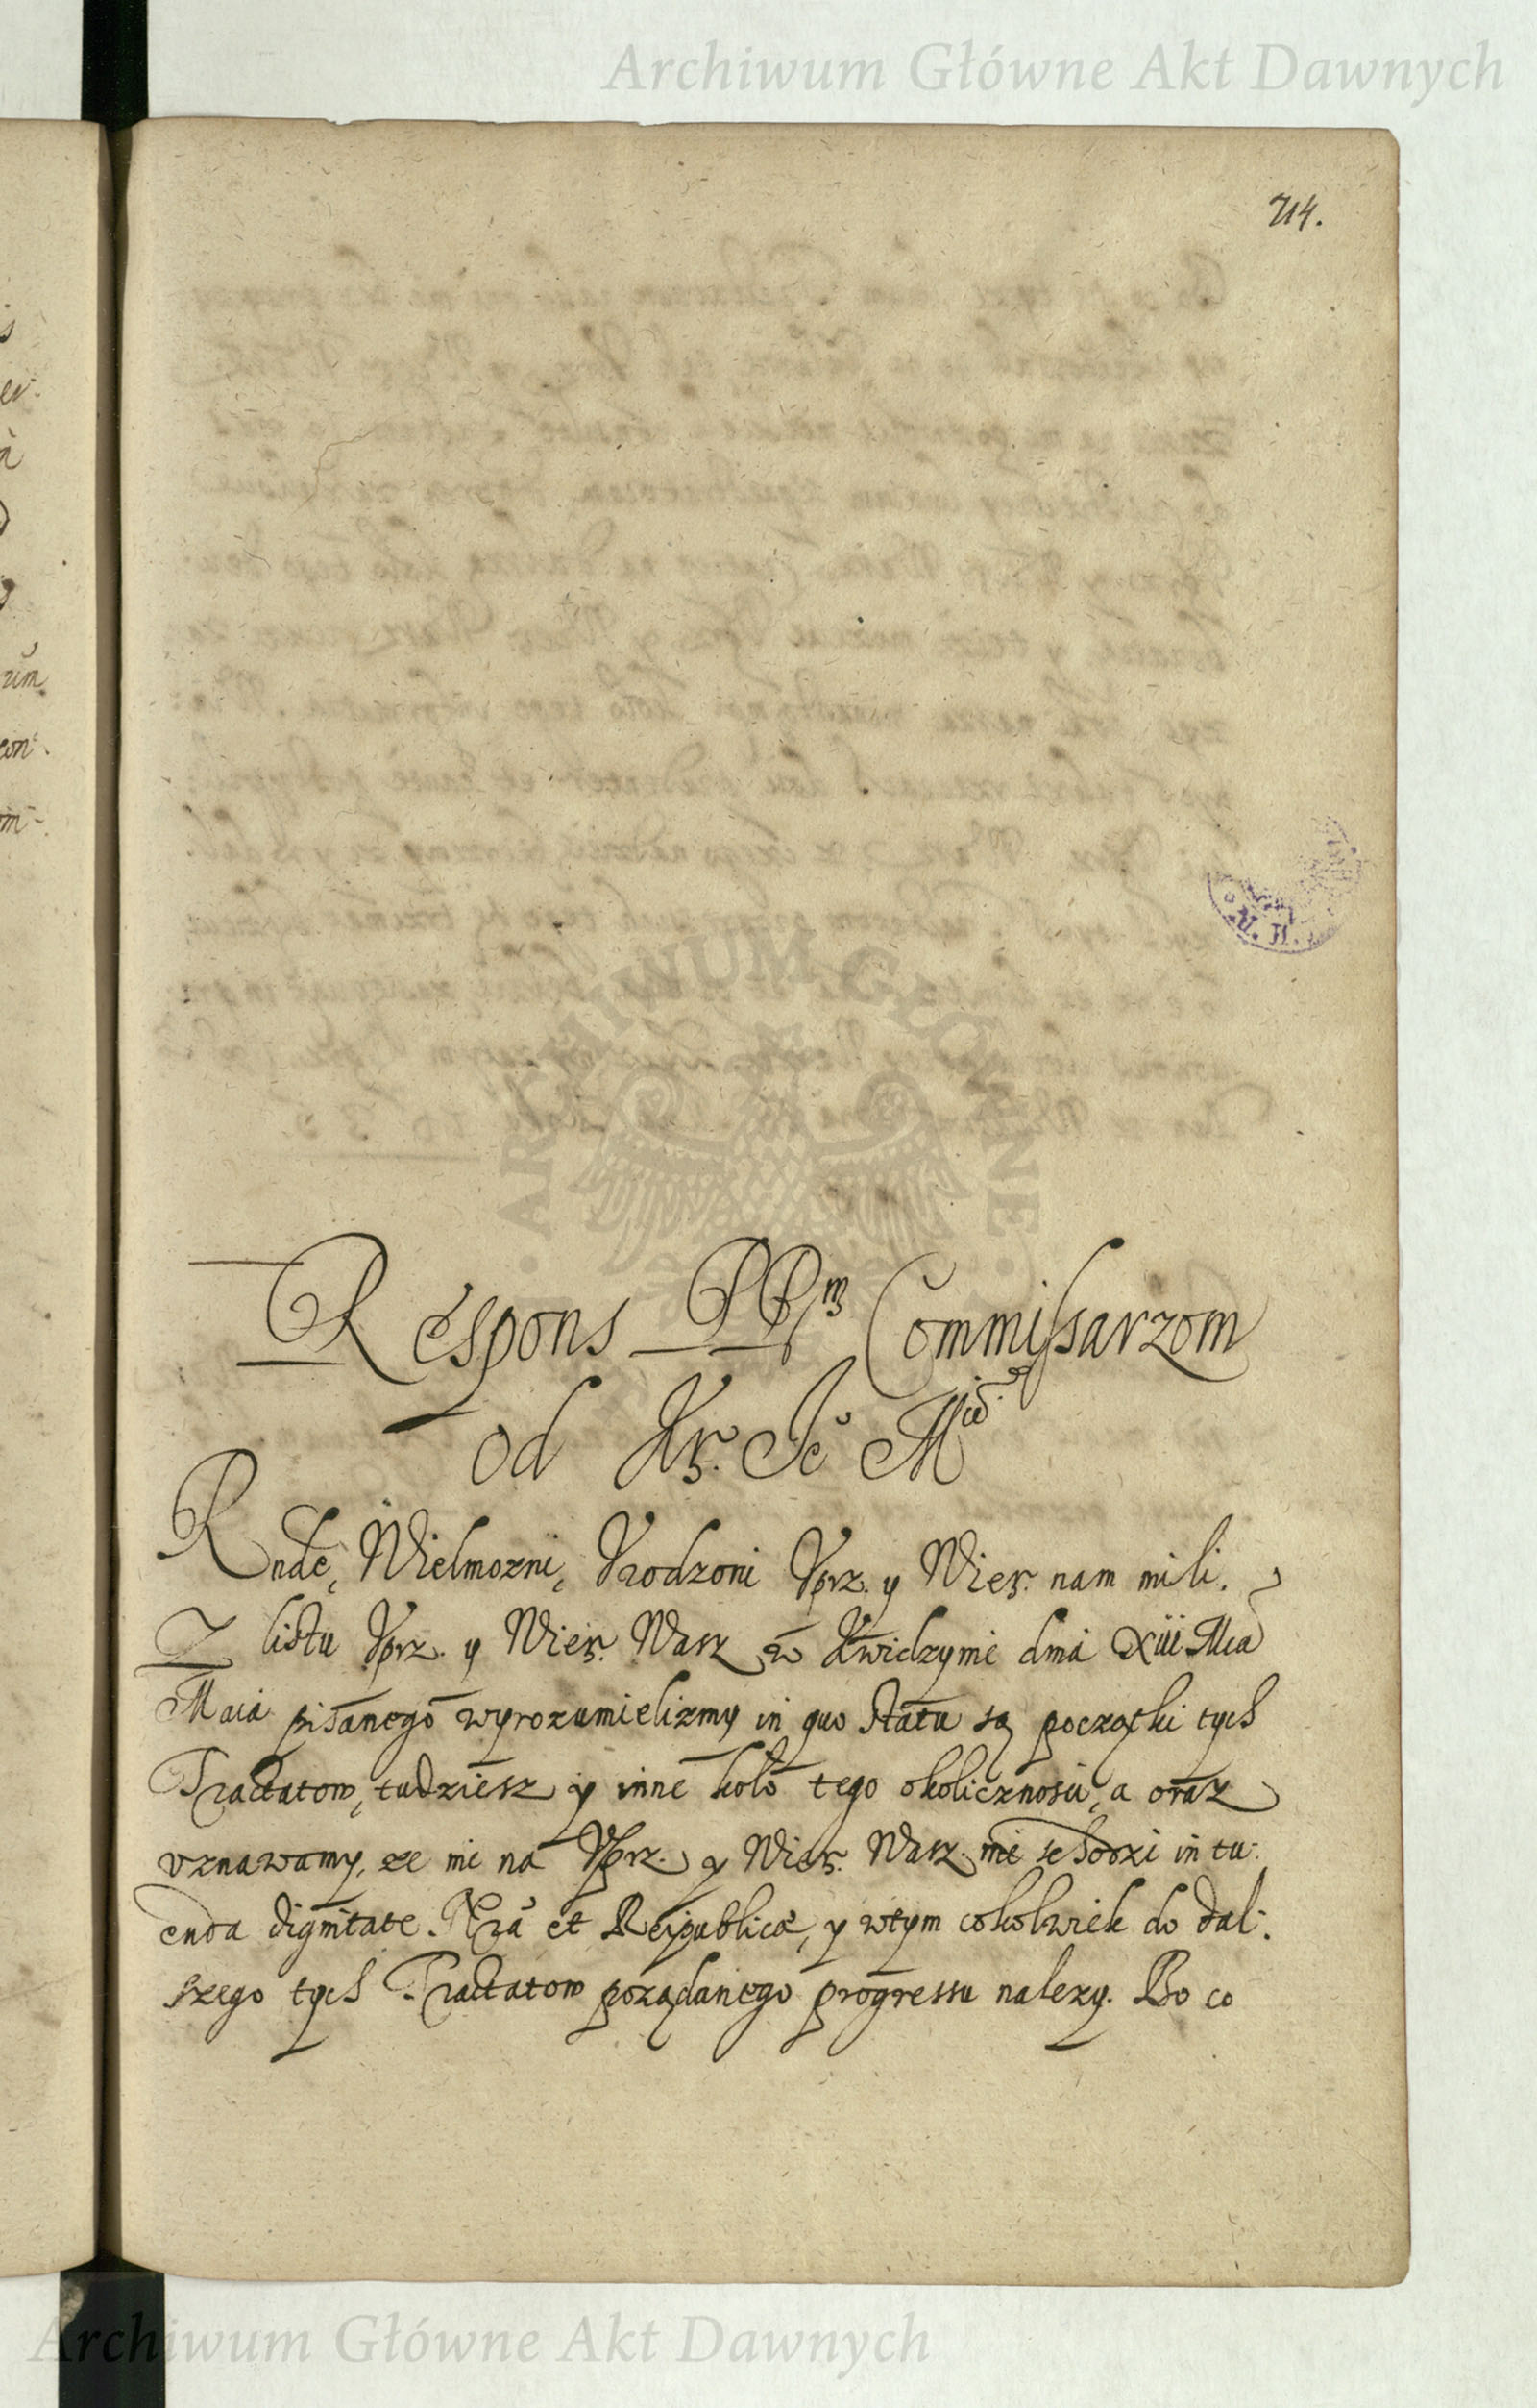 Archiwum Główne Akt Dawnych
714.
ARCHIWUM GŁÓWNE
Respons PP<sup>m</sup> Commissarzom
od Kr. Je<sup>o</sup> M<sup>ci</sup>
Rnde, Wielmozni, Vrodzoni Vprz. y Wier. nam mili.
Z listu Vprz. y Wier. Wasz w Kwidzynie dnia XIII Mca
Maia pisanego wyrozumielizmy in quo statu są początki tych
Tractatow, tudziesz y inne koło tego okolicznosci, a oraz
vznawamy, ze ni na Vprz. y Wier. Wasz. nie schodzi in tu:
enda dignitate Nra et Reipublicæ, y wtym cokolwiek do dal:
szego tych Tractatow poządanego progressu nalezy. Bo co
Archiwum Główne Akt Dawnych